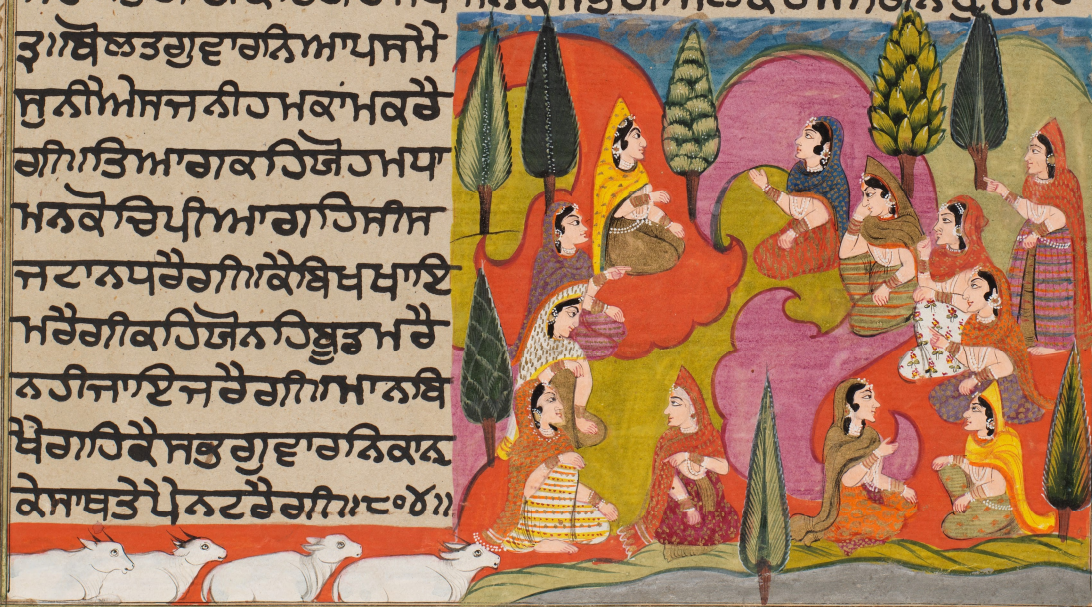 ੩॥ਬੋਲਤਗੁਵਾਰਨਿਆਪਸਮੈ
ਸੁਨੀਐਸਜਨੀਹਮਕਾਂਮਕਰੈ
ਗੀ॥ਤਿਆਗਕਹਿਯੋਹਮਧਾ
ਮਨਕੋਚਿਪੀਆਗਹਿਸੀਸ
ਜਟਾਨਧਰੈਗੀ॥ਕੈਬਿਖਖਾਇ
ਮਰੈਗੀਕਹਿਯੋਨਹਿਬੂਡਮਰੈ
ਨਹੀਜਾਇਜਰੈਗੀ॥ਮਾਨਬਿ
ਖੈਗਹਿਕੈਸਭਗੁਵਾਰਨਿਕਾਨ
ਕੇਸਾਥਤੇਪੈਨਟਰੈਗੀ॥੮੦੪॥